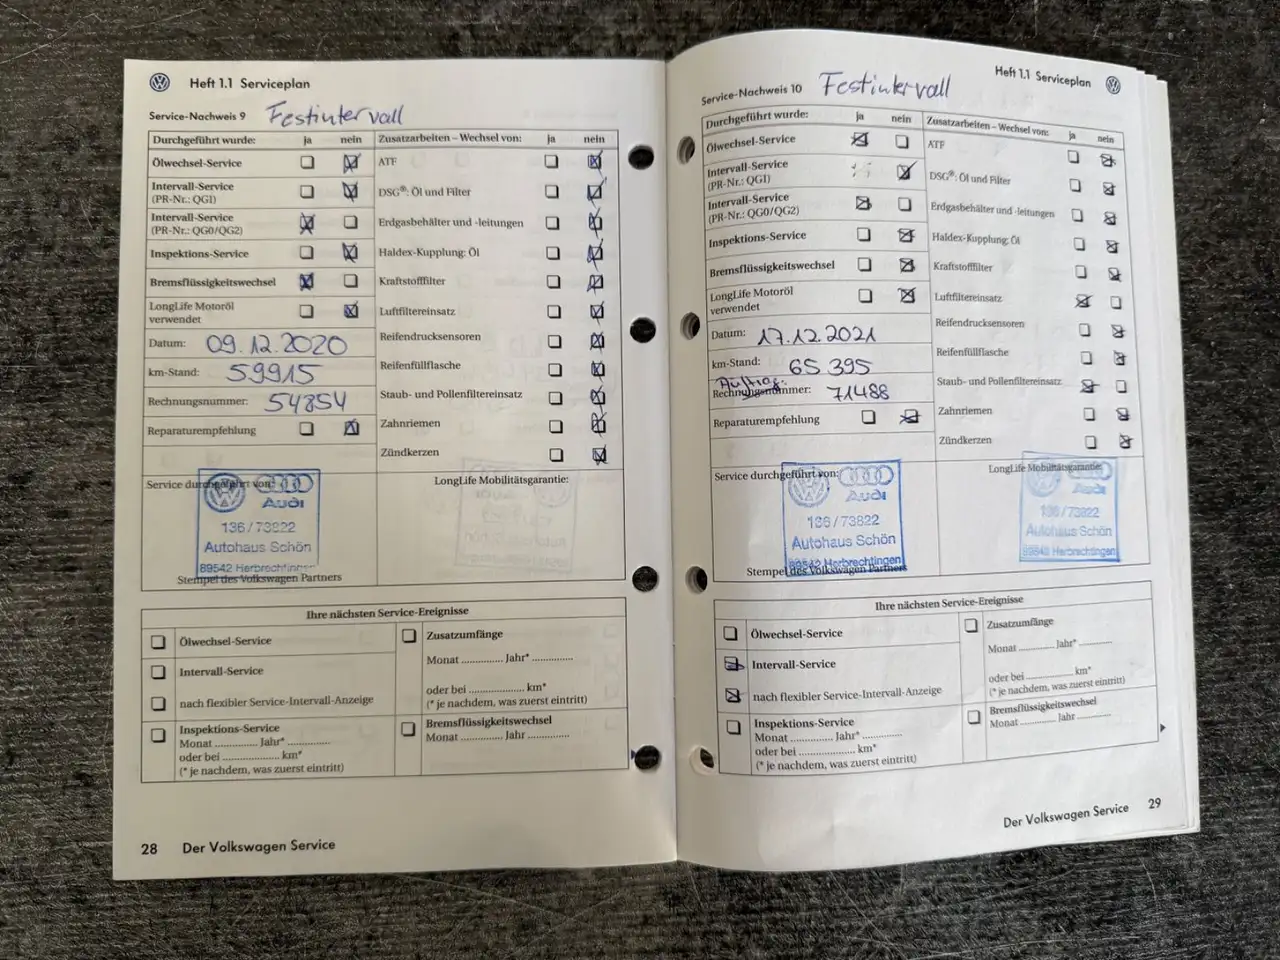 Heft 1.1 Serviceplan
Service-Nachweis 9 Festintervall
Durchgeführt wurde: ja nein
Ölwechsel-Service
Intervall-Service
(PR-Nr.: QG1)
Intervall-Service
(PR-Nr.: QG0/QG2)
Inspektions-Service
Bremsflüssigkeitswechsel
LongLife Motoröl
verwendet
Datum: 09.12.2020
km-Stand: 59915
Rechnungsnummer: 54854
Reparaturempfehlung
Zusatzarbeiten – Wechsel von: ja nein
ATF
DSG®: Öl und Filter
Erdgasbehälter und -leitungen
Haldex-Kupplung: Öl
Kraftstofffilter
Luftfiltereinsatz
Reifendrucksensoren
Reifenfüllflasche
Staub- und Pollenfiltereinsatz
Zahnriemen
Zündkerzen
Service durchgeführt von:
Audi
136/73822
Autohaus Schön
89542 Herbrechtingen
Stempel des Volkswagen Partners
LongLife Mobilitätsgarantie:
Ihre nächsten Service-Ereignisse
Ölwechsel-Service
Intervall-Service
nach flexibler Service-Intervall-Anzeige
Inspektions-Service
Monat .............. Jahr* ..............
oder bei .................. km*
(* je nachdem, was zuerst eintritt)
Zusatzumfänge
Monat .............. Jahr* ..............
oder bei .................. km*
(* je nachdem, was zuerst eintritt)
Bremsflüssigkeitswechsel
Monat .............. Jahr ..............
28 Der Volkswagen Service
Heft 1.1 Serviceplan
Service-Nachweis 10 Festintervall
Durchgeführt wurde: ja nein
Ölwechsel-Service
Intervall-Service
(PR-Nr.: QG1)
Intervall-Service
(PR-Nr.: QG0/QG2)
Inspektions-Service
Bremsflüssigkeitswechsel
LongLife Motoröl
verwendet
Datum: 17.12.2021
km-Stand: 65 395
Auftrag:
Rechnungsnummer: 71488
Reparaturempfehlung
Zusatzarbeiten – Wechsel von: ja nein
ATF
DSG®: Öl und Filter
Erdgasbehälter und -leitungen
Haldex-Kupplung: Öl
Kraftstofffilter
Luftfiltereinsatz
Reifendrucksensoren
Reifenfüllflasche
Staub- und Pollenfiltereinsatz
Zahnriemen
Zündkerzen
Service durchgeführt von:
Audi
136/73822
Autohaus Schön
89542 Herbrechtingen
Stempel des Volkswagen Partners
LongLife Mobilitätsgarantie:
Audi
136/73822
Autohaus Schön
89542 Herbrechtingen
Ihre nächsten Service-Ereignisse
Ölwechsel-Service
Intervall-Service
nach flexibler Service-Intervall-Anzeige
Inspektions-Service
Monat .............. Jahr* ..............
oder bei .................. km*
(* je nachdem, was zuerst eintritt)
Zusatzumfänge
Monat .............. Jahr* ..............
oder bei .................. km*
(* je nachdem, was zuerst eintritt)
Bremsflüssigkeitswechsel
Monat .............. Jahr ..............
Der Volkswagen Service 29